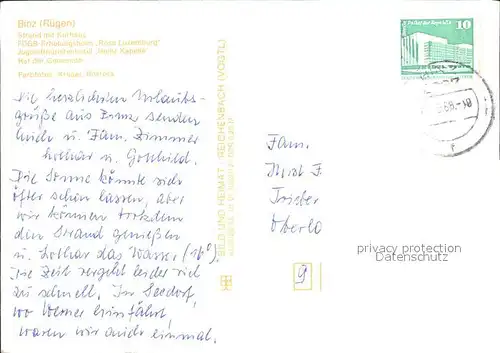 Binz (Rügen)
Strand mit Kurhaus
FDGB-Erholungsheim „Rosa Luxemburg"
Rat der Gemeinde
Die herzlichsten Urlaubs-
grüße aus Binz senden
Euch u. Fam. Zimmer
Lothar u. Gotthild.
Die Sonne könnte sich
öfter sehen lassen, aber
wir können trotzdem
den Strand genießen
u. Lothar das Wasser (16°).
Die Zeit vergeht leider viel
zu schnell. In Seedorf,
wo Werner hinfährt,
waren wir auch einmal.
BILD UND HEIMAT REICHENBACH (VOGTL)
10
Fam.
Horst F
Oberlo
9
privacy protection
Datenschutz